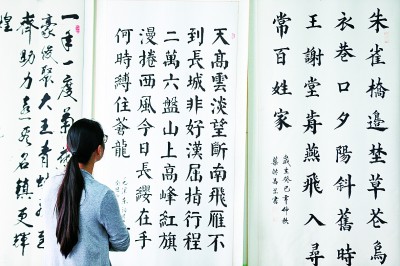 朱雀橋邊埜草花烏
衣巷口夕陽斜舊時
王謝堂歬燕飛入尋
常百姓家
天高雲淡望斷南飛雁不
到長城非好漢屈指行程
二萬六盤山上高峰紅旗
漫捲西風今日長纓在手
何時縛住蒼龍
一年一度
豪俊聚大王
齊助力
煌